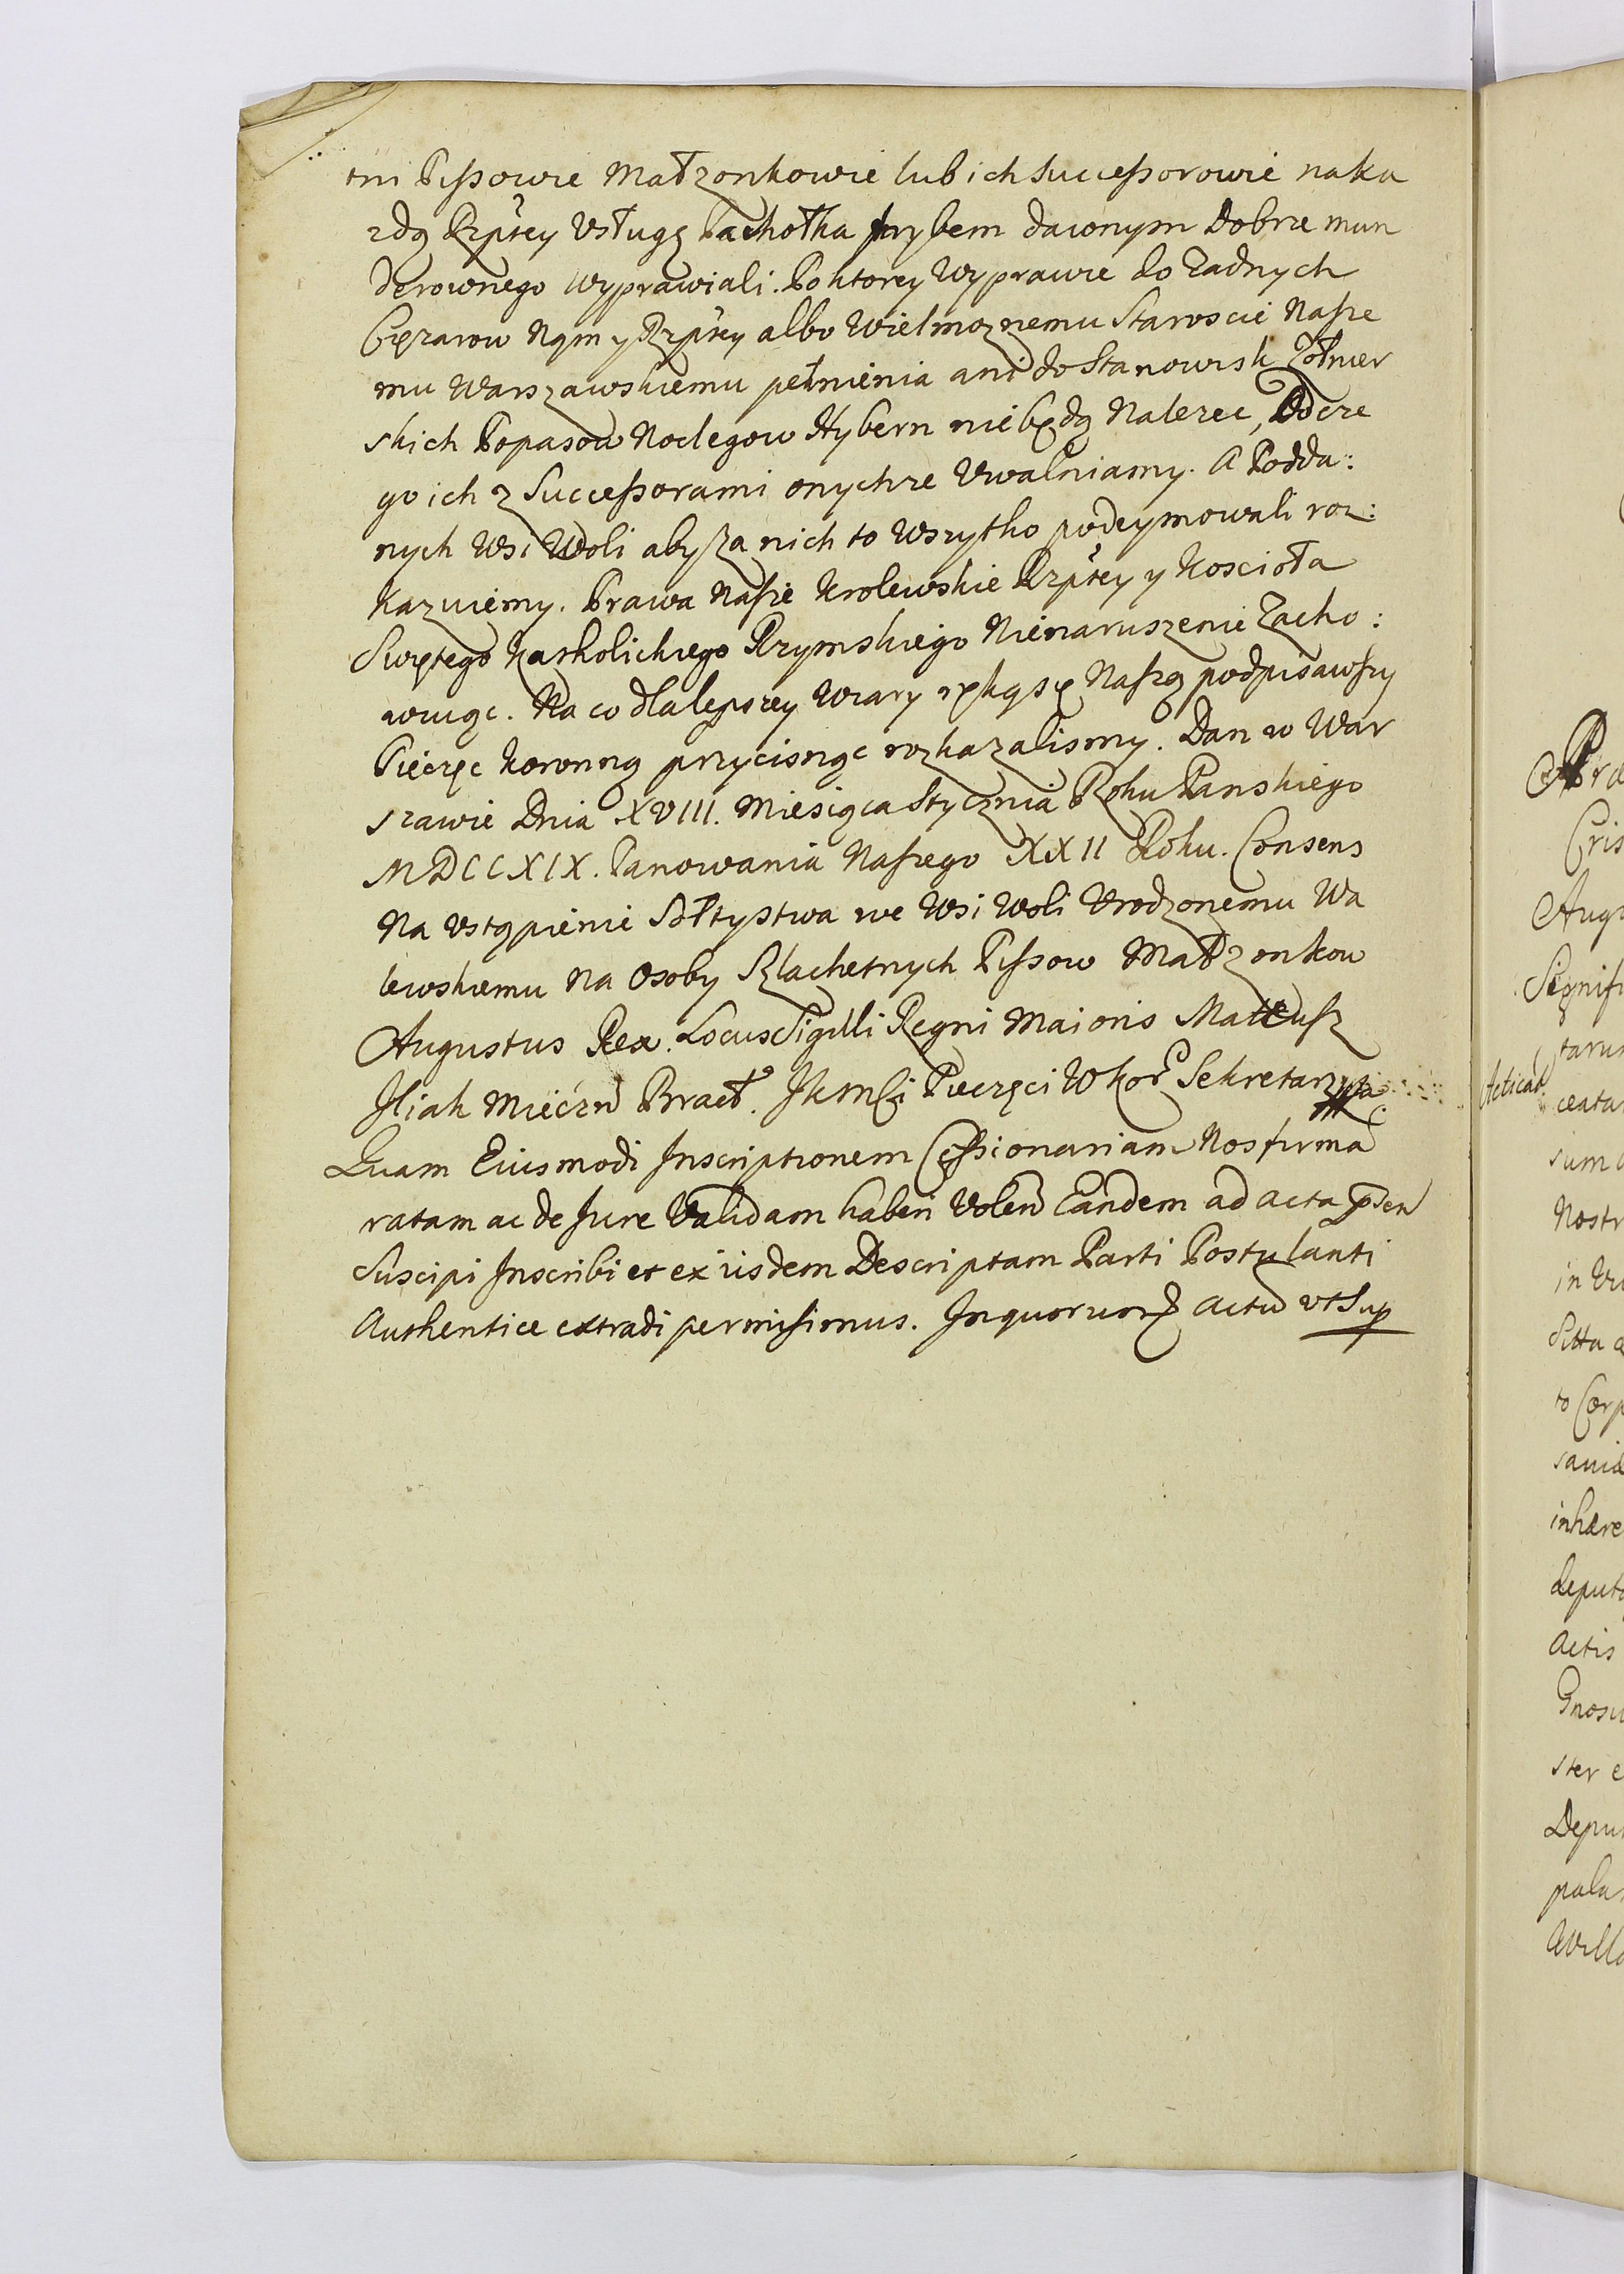 tni Pissowie Małzonkowie lub ich Successorowie naka
zdą Rzptey Usługę Pachołka trybem dawnym Dobrze mun
derownego wyprawiali. Po ktorey Wyprawie do Zadnych
Cięzarow Nąm y Rzptey albo Wielmoznemu Staroscie Nasze
mu Warszawskiemu pełnienia ani do Stanowisk Zołnier
skich Popasow Noclegow Hybern nie będą Nalezec, Od cze
go ich z Successorami onychze Uwalniamy. A Podda:
nych Wsi Woli aby za nich to Wszytko podeymowali roz:
kazuiemy. Prawa Nasze Krolewskie Rzptey y Koscioła
Swiętego Katholickiego Rzymskiego Nienaruszenie Zacho:
wuiąc. Na co dla lepszey Wiary ręką się Naszą podpisawszy
Pieczęc Koronną przycisnąc rozkazalismy. Dan w War
szawie Dnia XVIII. Miesiąca Stycznia Roku Panskiego
MDCCXIX. Panowania Naszego XXII Roku. Consens
Na Ustąpienie Sołtystwa we Wsi Woli Urodzonemu Wa
lewskiemu Na Osoby Szlachetnych Pissow Małzonkow
Augustus Rex. Locus Sigilli Regni Maioris Matteusz
Iliak Mieczn Bracł. JkMsci Pieczęci W Kor Sekretarz
Quam Eiusmodi Inscriptionem Cessionariam Nos firma
ratam ac de Jure Validam haberi Volen Eandem ad Acta psen
Suscipi Inscribi et ex iisdem Descriptam Parti Postulanti
Authentice extradi permisimus. In quorum Actu ut Sup
Acticat
Cris
Signifi
ceata
sum
Nostr
inhære
deputa
Actis
ster e
Depu